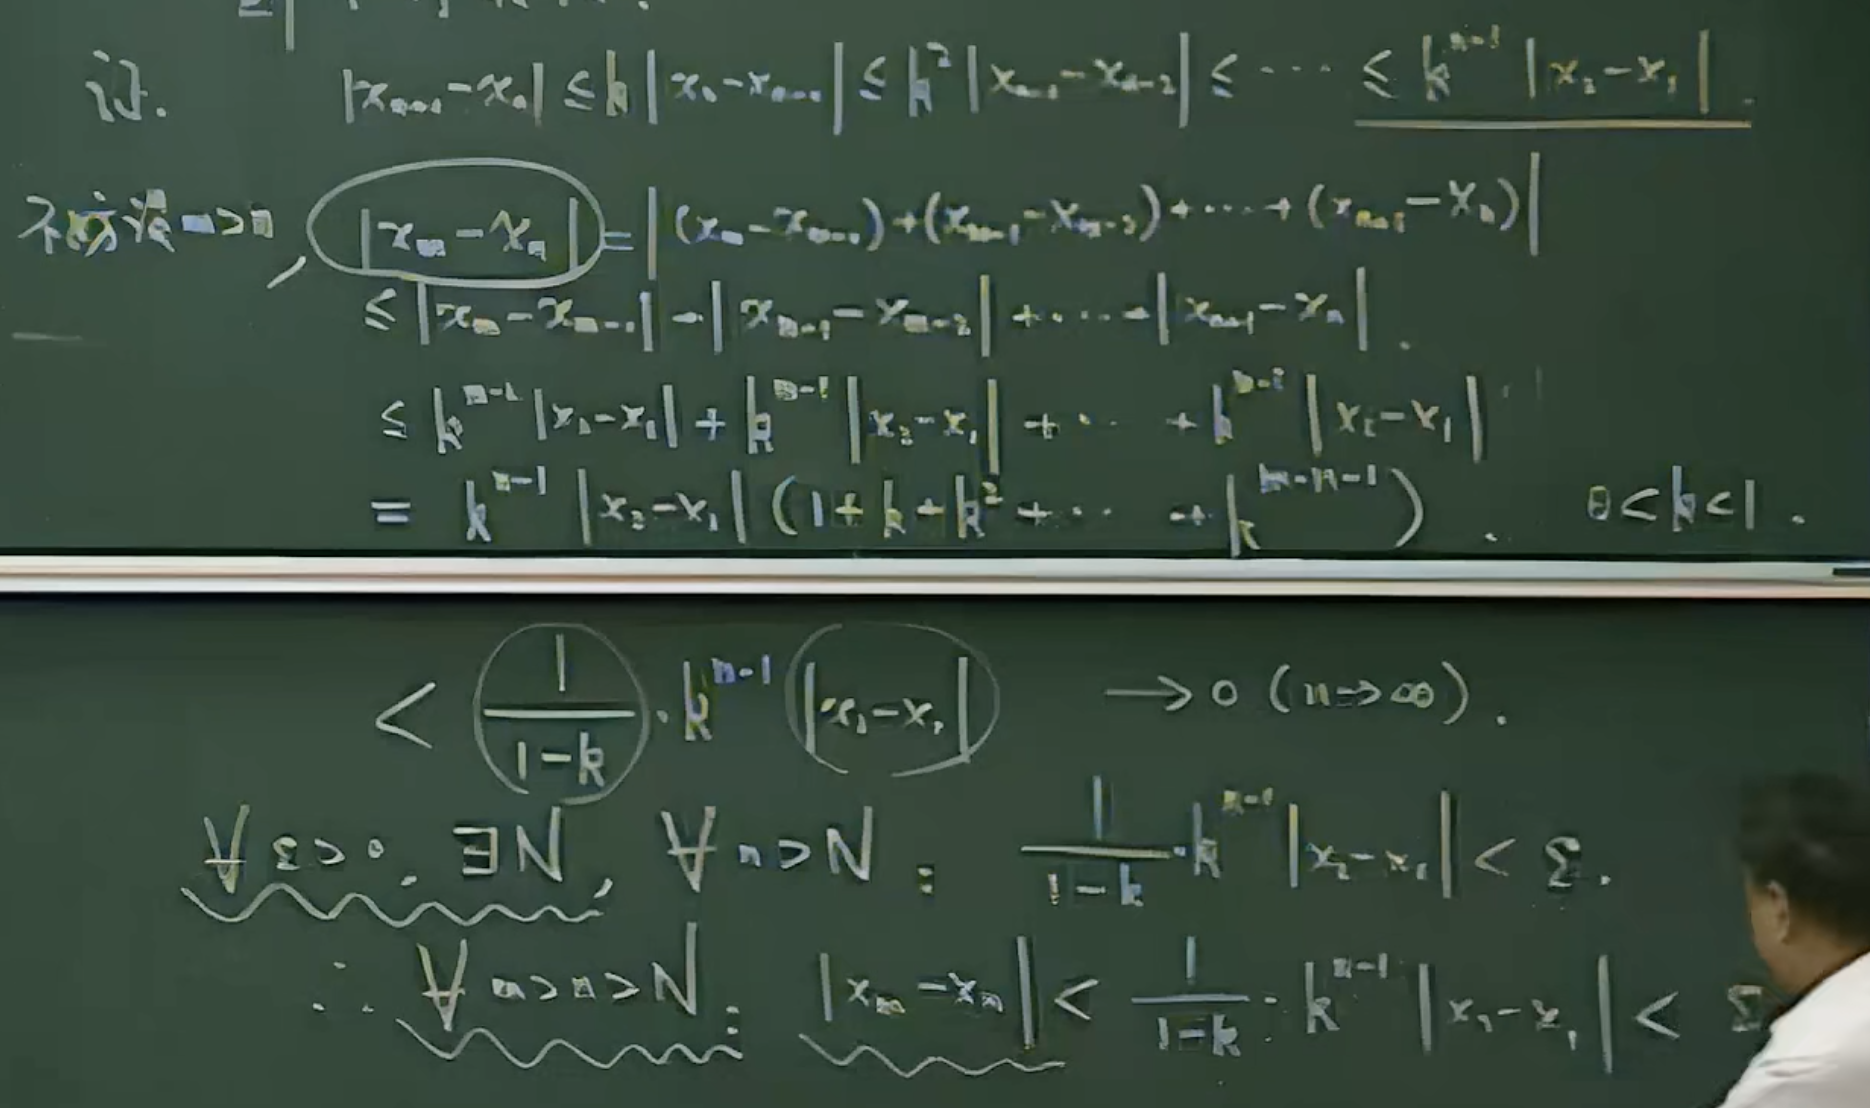 证. |x_{n+1}-x_n| ≤ k|x_n-x_{n-1}| ≤ k^2|x_{n-1}-x_{n-2}| ≤ ⋯ ≤ k^{n-1}|x_2-x_1|.
不妨设 m>n, |x_m-x_n| = |(x_m-x_{m-1})+(x_{m-1}-x_{m-2})+⋯+(x_{n+1}-x_n)|
≤ |x_m-x_{m-1}|+|x_{m-1}-x_{m-2}|+⋯+|x_{n+1}-x_n|.
≤ k^{m-2}|x_2-x_1|+k^{m-3}|x_2-x_1|+⋯+k^{n-1}|x_2-x_1|
= k^{n-1}|x_2-x_1|(1+k+k^2+⋯+k^{m-n-1}). 0<k<1.
< \frac{1}{1-k}·k^{n-1}|x_2-x_1| → 0 (n→∞).
∀ε>0, ∃N, ∀n>N: \frac{1}{1-k}·k^{n-1}|x_2-x_1| < ε.
∴ ∀m>n>N: |x_m-x_n| < \frac{1}{1-k}·k^{n-1}|x_2-x_1| < ε